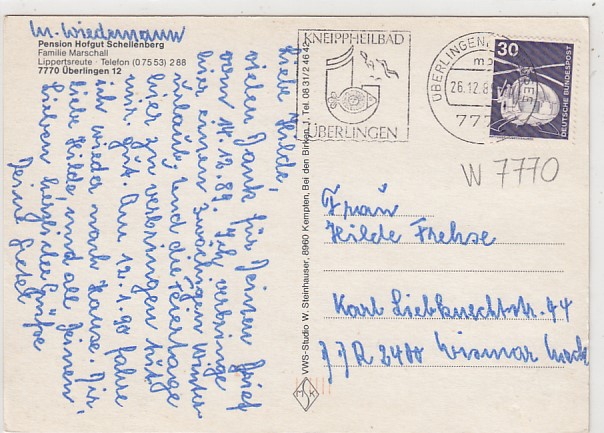 M. Wiedemann
Pension Hofgut Schellenberg
Familie Marschall
Lippertsreute · Telefon (0 75 53) 2 88
7770 Überlingen 12
Liebe Hilde,
vielen Dank für Deinen Brief
vom 14.12.89. Ich verbringe
hier einen zwöchigen Winter
urlaub, und die Feiertage
hier zu verbringen tut
mir gut. Am 12.1.90 fahre
ich wieder nach Hause. Dir,
liebe Hilde, und all Deinen
Lieben herzliche Grüße
Deine Gretel
VWS-Studio W. Steinhauser, 8960 Kempten, Bei den Birken 1, Tel. 08 31/2 46 42
KNEIPPHEILBAD
ÜBERLINGEN
ÜBERLINGEN
26.12.8
777
30
DEUTSCHE BUNDESPOST
W 7770
Frau
Hilde Frehse
Karl Liebknechtstr. 44
DDR 2400 Wismar